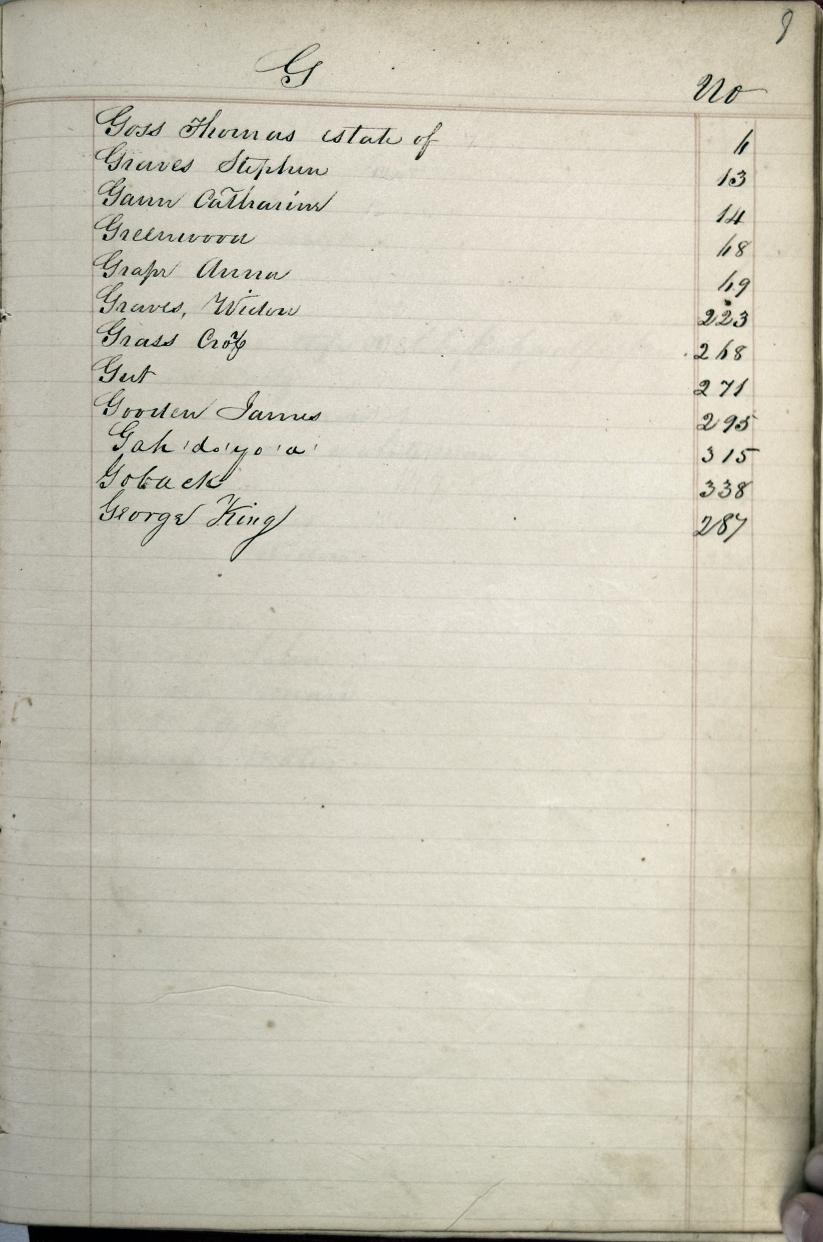 9
G No
Goss Thomas estate of 6
Graves Stephen 13
Gann Catharine 14
Greenwood 68
Grape Anna 69
Graves, Widow 223
Grass 268
Gut 271
Gooden James 295
Gah'do'yo'a' 315
Goback 338
George King 287